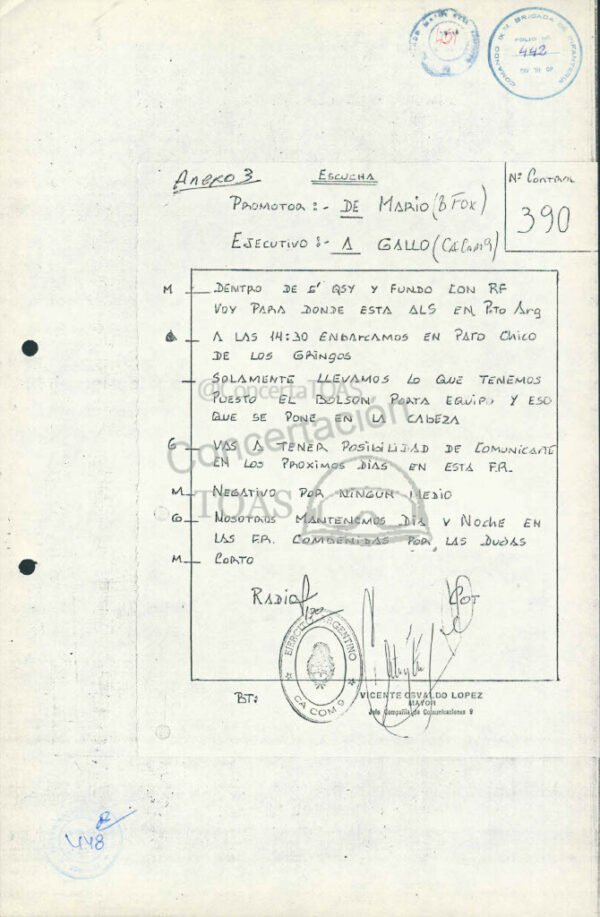 431
COMANDO IX BRIGADA DE INFANTERIA
FOLIO Nº
442
Anexo 3
ESCUCHA
Nº CONTROL
390
PROMOTOR :- DE MARIO (B FOX)
EJECUTIVO :- A GALLO (CA COM 9)
M — DENTRO DE 5' QSY Y FUNDO CON RF
VOY PARA DONDE ESTA ALS EN Pto Arg
— A LAS 14:30 EMBARCAMOS EN PATO CHICO
DE LOS GRINGOS
— SOLAMENTE LLEVAMOS LO QUE TENEMOS
PUESTO EL BOLSON PORTA EQUIPO Y ESO
QUE SE PONE EN LA CABEZA
G — VAS A TENER POSIBILIDAD DE COMUNICARTE
EN LOS PROXIMOS DIAS EN ESTA F.R.
M — NEGATIVO POR NINGUN MEDIO
G — NOSOTROS MANTENEMOS DIA Y NOCHE EN
LAS F.R. COMBENIDAS POR LAS DUDAS
M — CORTO
@ConcertaTOAS
Concertación
TOAS
RADIO
COT
EJERCITO ARGENTINO
CA COM 9
BT:
VICENTE OSVALDO LOPEZ
MAYOR
Jefe Compañía de Comunicaciones 9
448